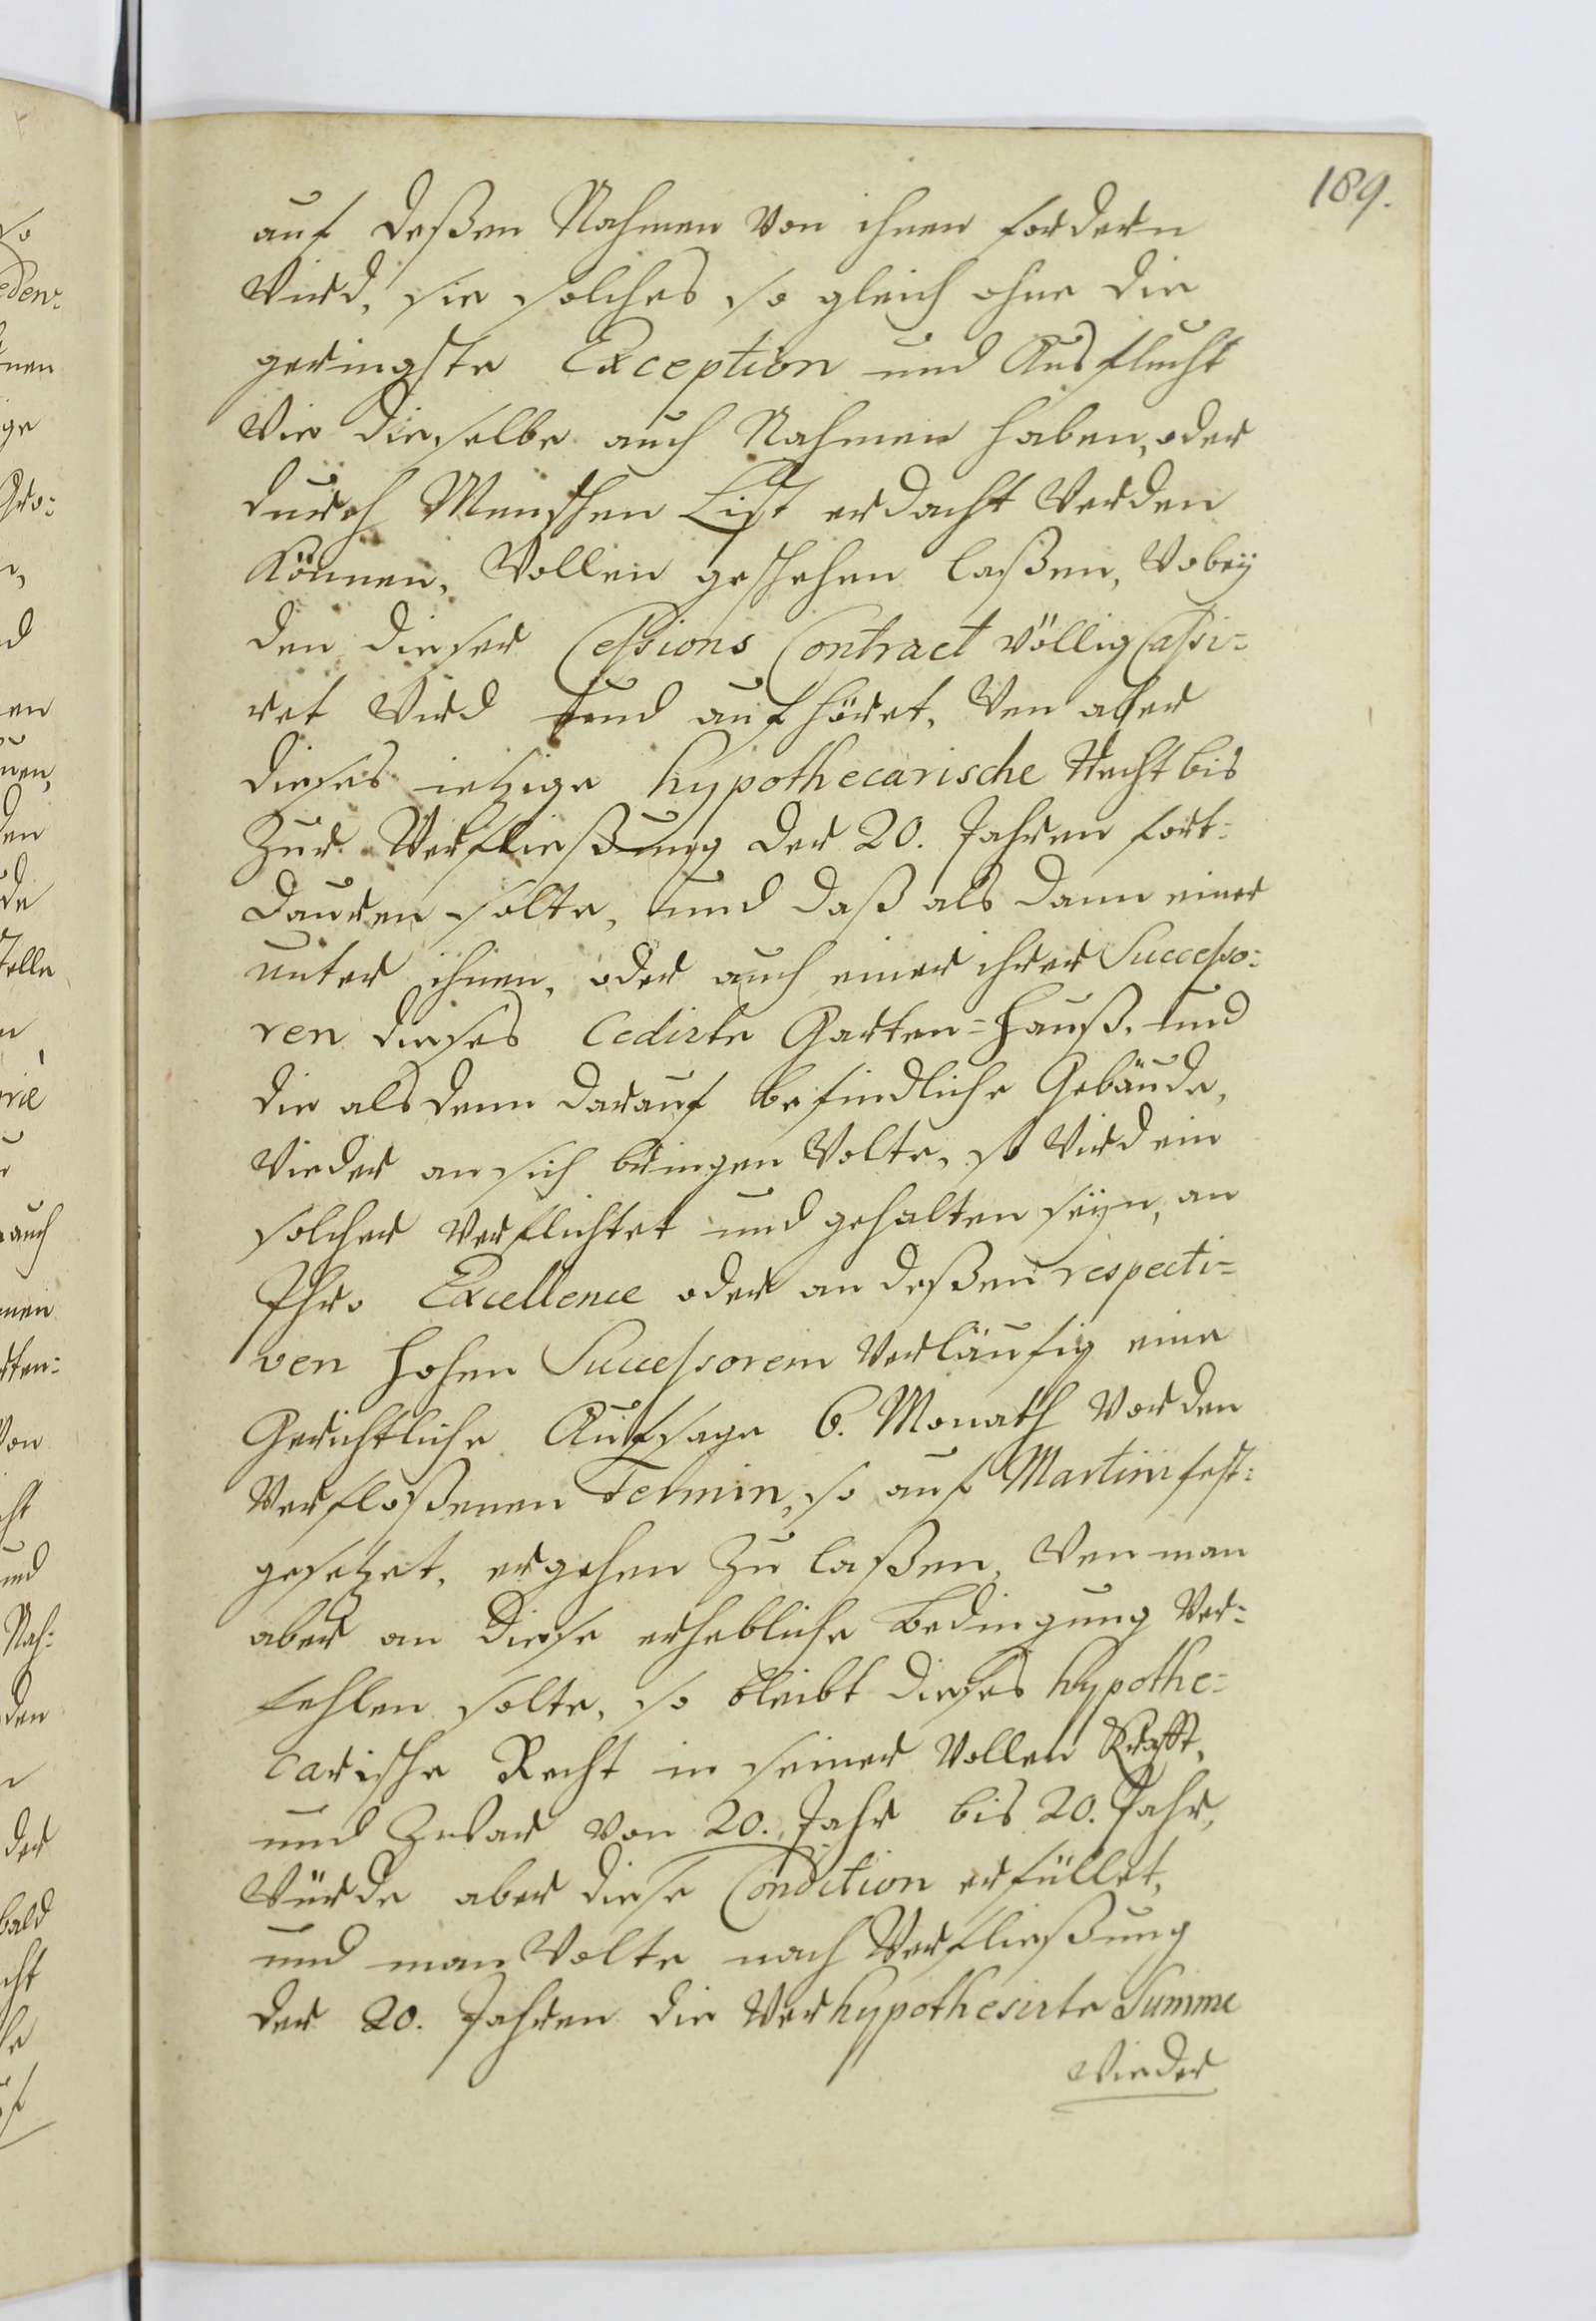 189.
auf deßen Nahmen von ihnen fordern
wird, sie solches so gleich ohne die
geringste Exception und Ausflucht
wie dieselbe auch Nahmen haben, oder
durch Menschen List erdacht werden
können, wollen geschehen laßen, wobeÿ
den dieser Cessions Contract völlig Cassi=
ret wird und aufhöret, wen aber
dieses ietzige hypothecarische Recht bis
zur Verfließung der 20. Jahren fort=
dauren solte, und daß als dann einer
unter ihnen, oder auch einer ihrer Successo=
ren dieses Cedirte Garten=Hauß, und
die alsdenn darauf befindliche Gebäude,
wieder an sich bringen wolte, so wird ein
solcher verflichtet und gehalten seÿn, an
Ihro Excellence oder an deßen respecti=
ven hohen Successorem verläufig eine
Gerichtliche Aufsage 6. Monath vor den
verfloßenen Termin, so auf Martini fest=
gesetzet, ergehen zu laßen, wen man
aber an diese erhebliche Bedingung ver=
fehlen solte, so bleibt dieses hypothe=
carische Recht in seiner vollen Krafft,
und zwar von 20. Jahr bis 20. Jahr,
würde aber diese Condition erfüllet,
und man wolte nach Verfließung
der 20. Jahren die verhypothesirte Summe
wieder